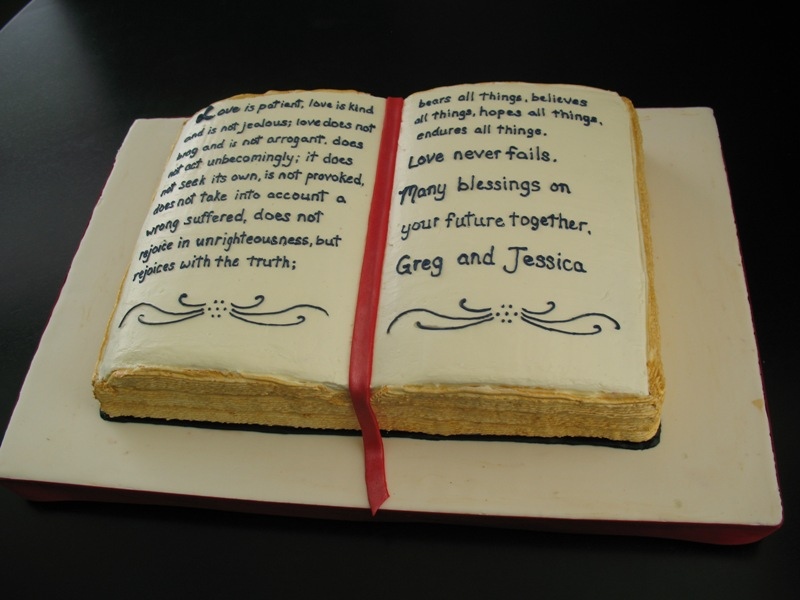 Love is patient, love is kind
and is not jealous; love does not
brag and is not arrogant. does
not act unbecomingly; it does
not seek its own, is not provoked,
does not take into account a
wrong suffered, does not
rejoice in unrighteousness, but
rejoices with the truth;
bears all things, believes
all things, hopes all things,
endures all things.
Love never fails.
Many blessings on
your future together,
Greg and Jessica